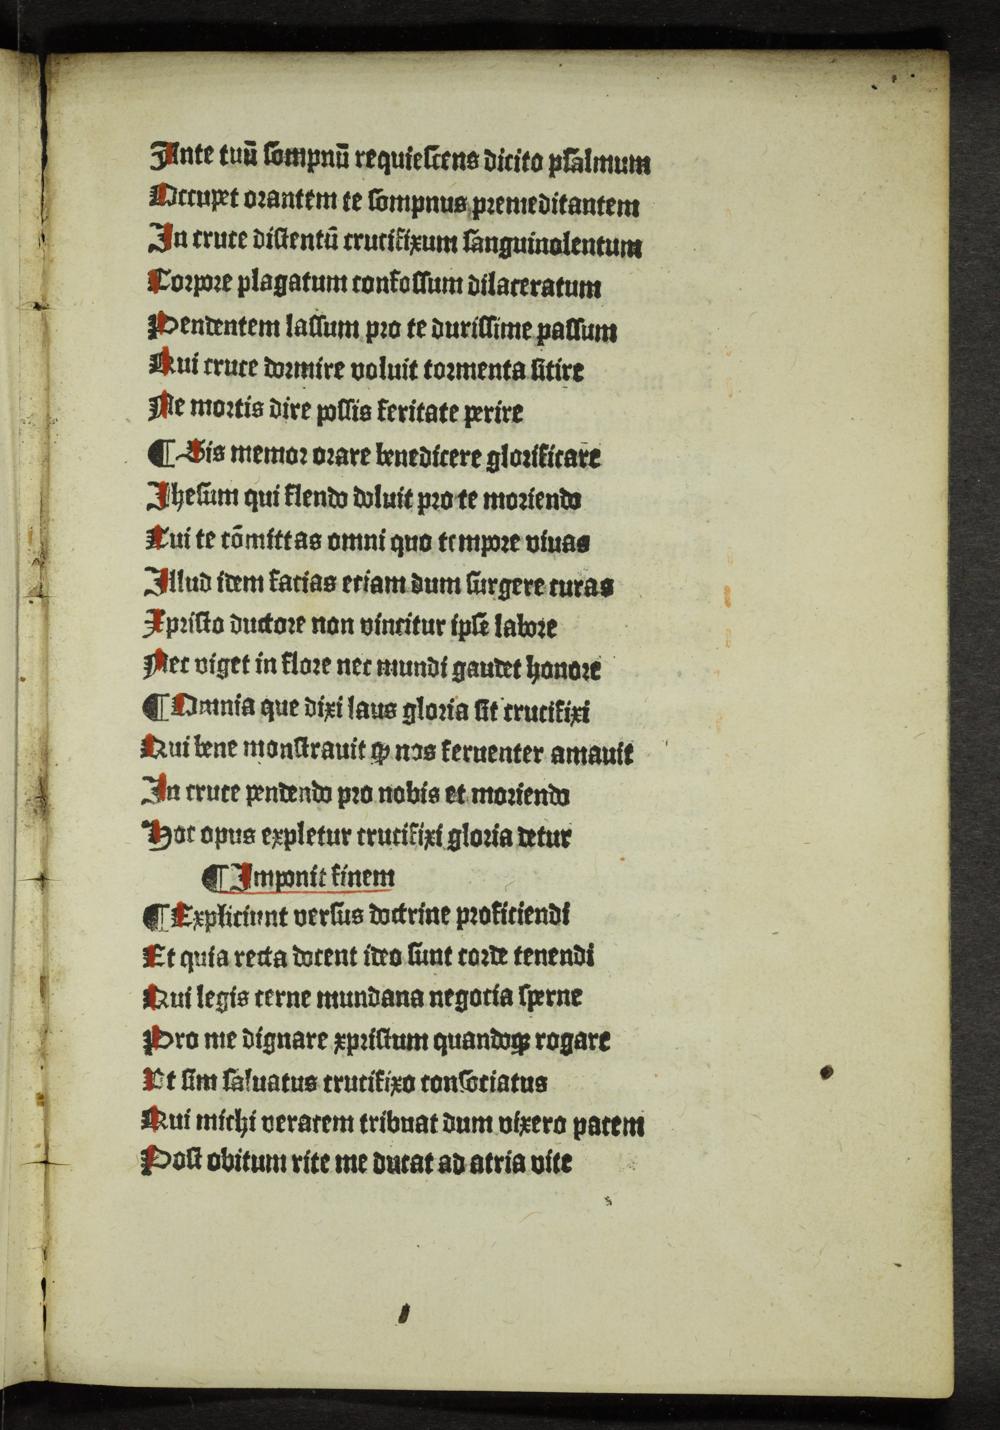 Ante tuū sompnū requiescens dicito psalmum
Occupet orantem te sompnus premeditantem
In cruce distentū crucifixum sanguinolentum
Corpore plagatum confossum dilaceratum
Pendentem lassum pro te durissime passum
Qui cruce dormire voluit tormenta sitire
Ne mortis dire possis feritate perire
¶ Sis memor orare benedicere glorificare
Jhesum qui flendo doluit pro te moriendo
Cui te cōmittas omni quo tempore viuas
Illud idem facias eciam dum surgere curas
Xpristo ductore non vincitur ipse labore
Nec viget in flore nec mundi gaudet honore
¶ Omnia que dixi laus gloria sit crucifixi
Qui bene monstrauit ꝙ nos feruenter amauit
In cruce pendendo pro nobis et moriendo
Hoc opus expletur crucifixi gloria detur
¶ Imponit finem
¶ Expliciunt versus doctrine proficiendi
Et quia recta docent ideo sunt corde tenendi
Qui legis cerne mundana negocia sperne
Pro me dignare xpristum quandoqꝫ rogare
Vt sim saluatus crucifixo consociatus
Qui michi veracem tribuat dum vixero pacem
Post obitum rite me ducat ad atria vite